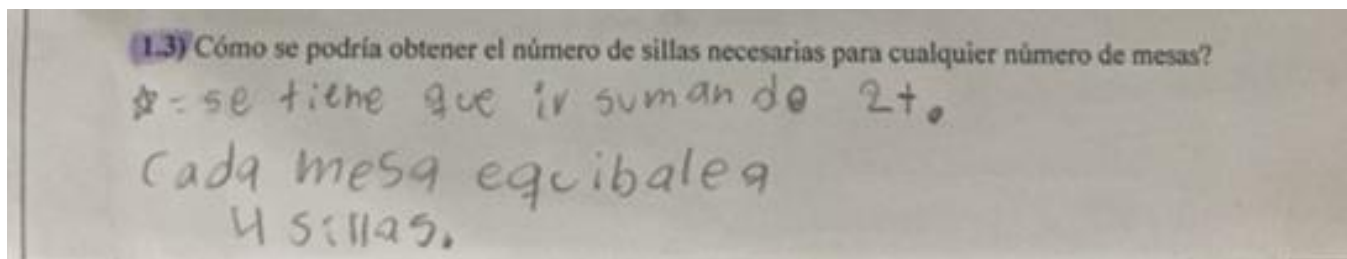 1.3) Cómo se podría obtener el número de sillas necesarias para cualquier número de mesas?
☆ = se tiene que ir sumando 2+.
Cada mesa equibale a
4 sillas.